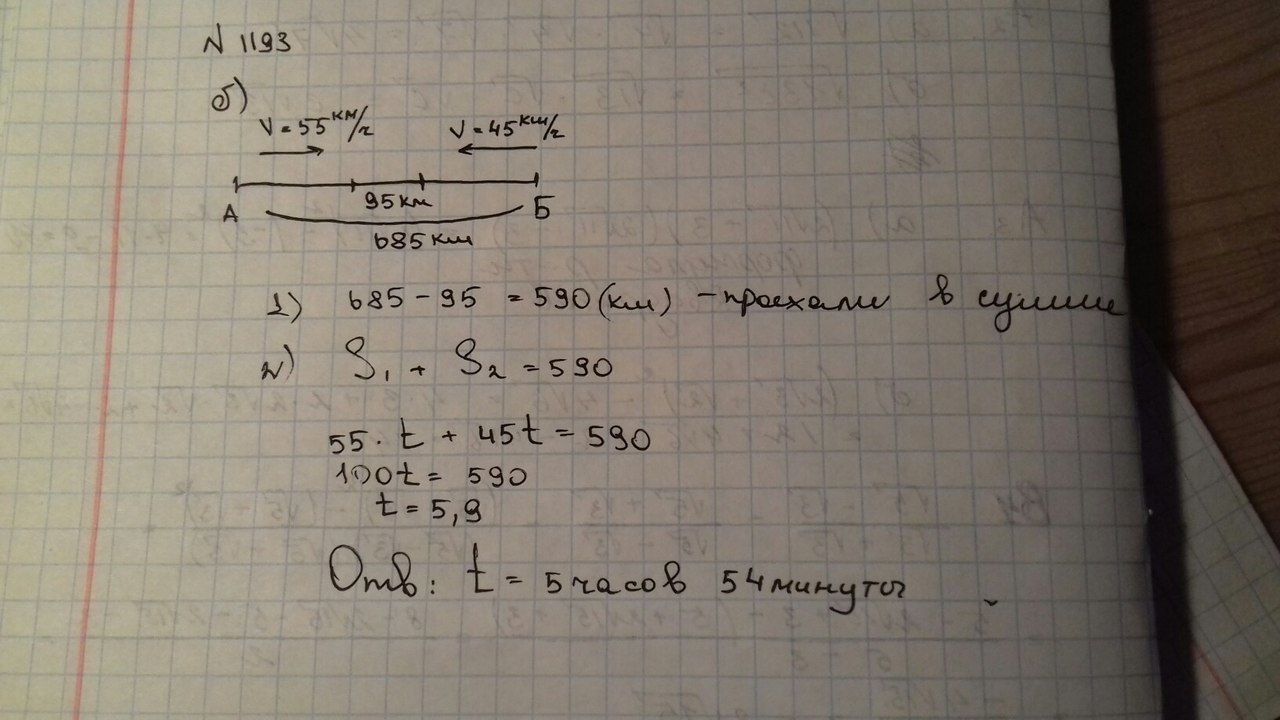 N 1193
б)
V = 55 км/ч V = 45 км/ч
95 км
А Б
685 км
1) 685 - 95 = 590 (км) - проехали в сумме
2) S₁ + S₂ = 590
55 · t + 45t = 590
100t = 590
t = 5,9
Отв: t = 5 часов 54 минуты